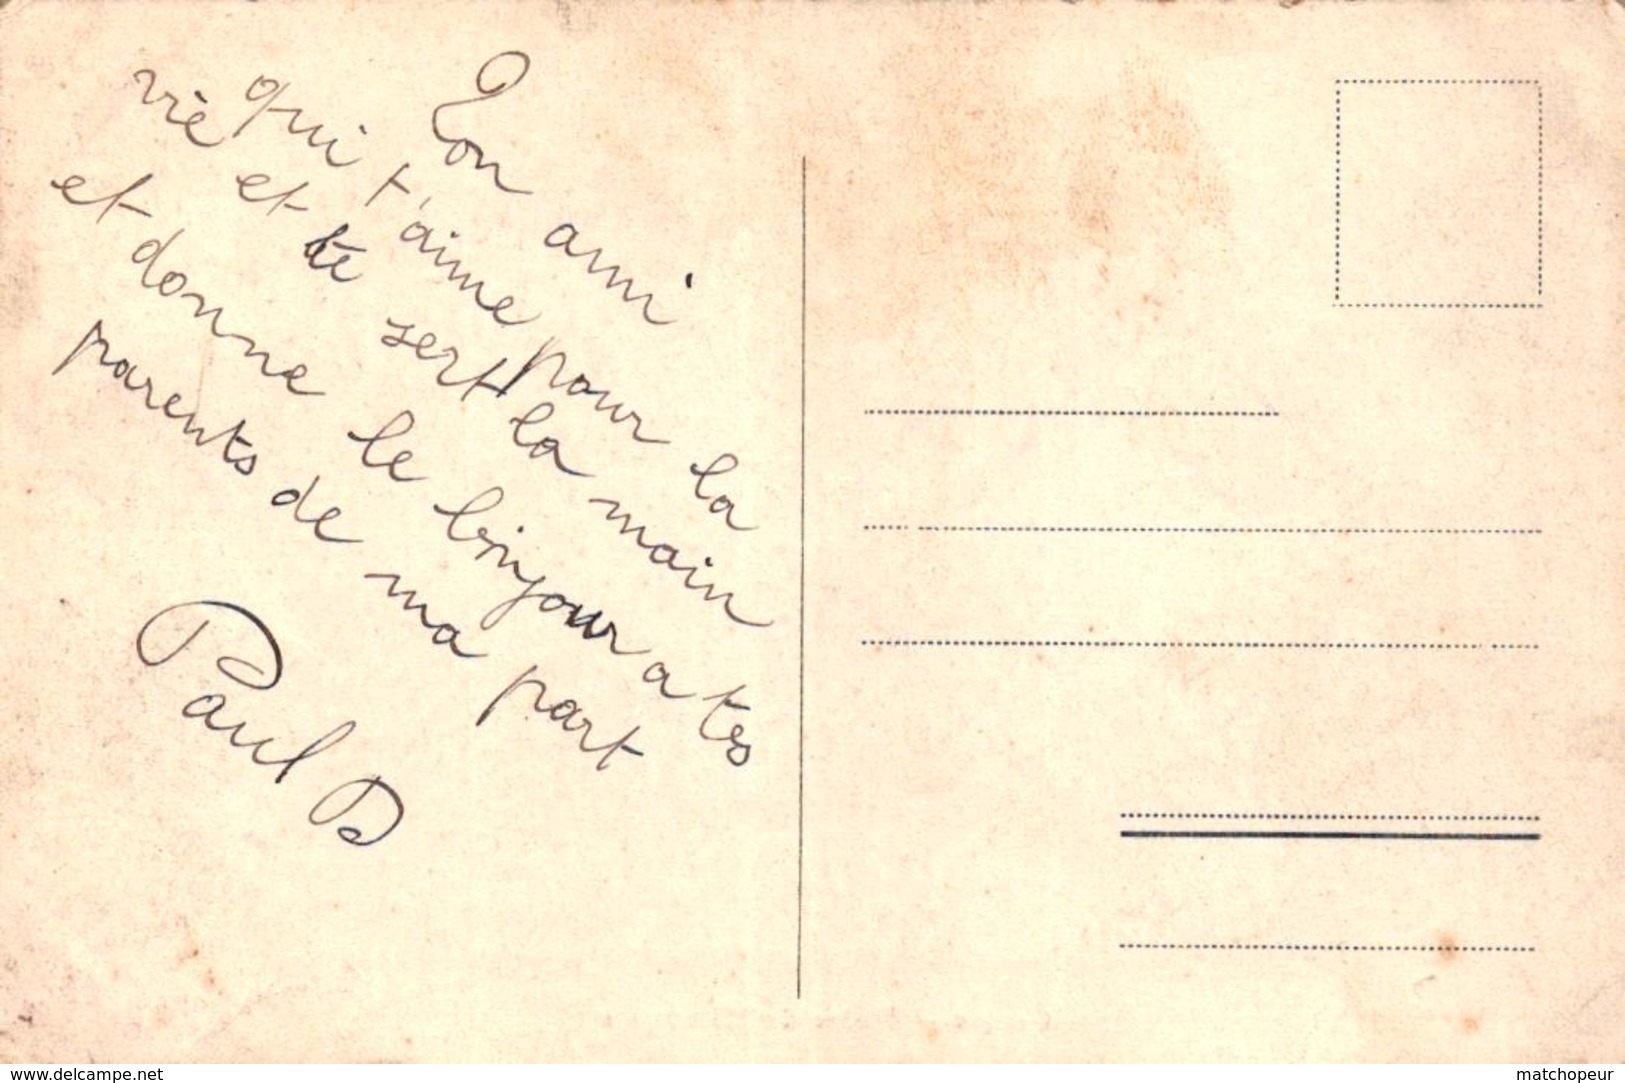 Ton ami
qui t'aime pour la
vie et te sert la main
et donne le bonjour a tes
parents de ma part
Paul D
www.delcampe.net
matchopeur